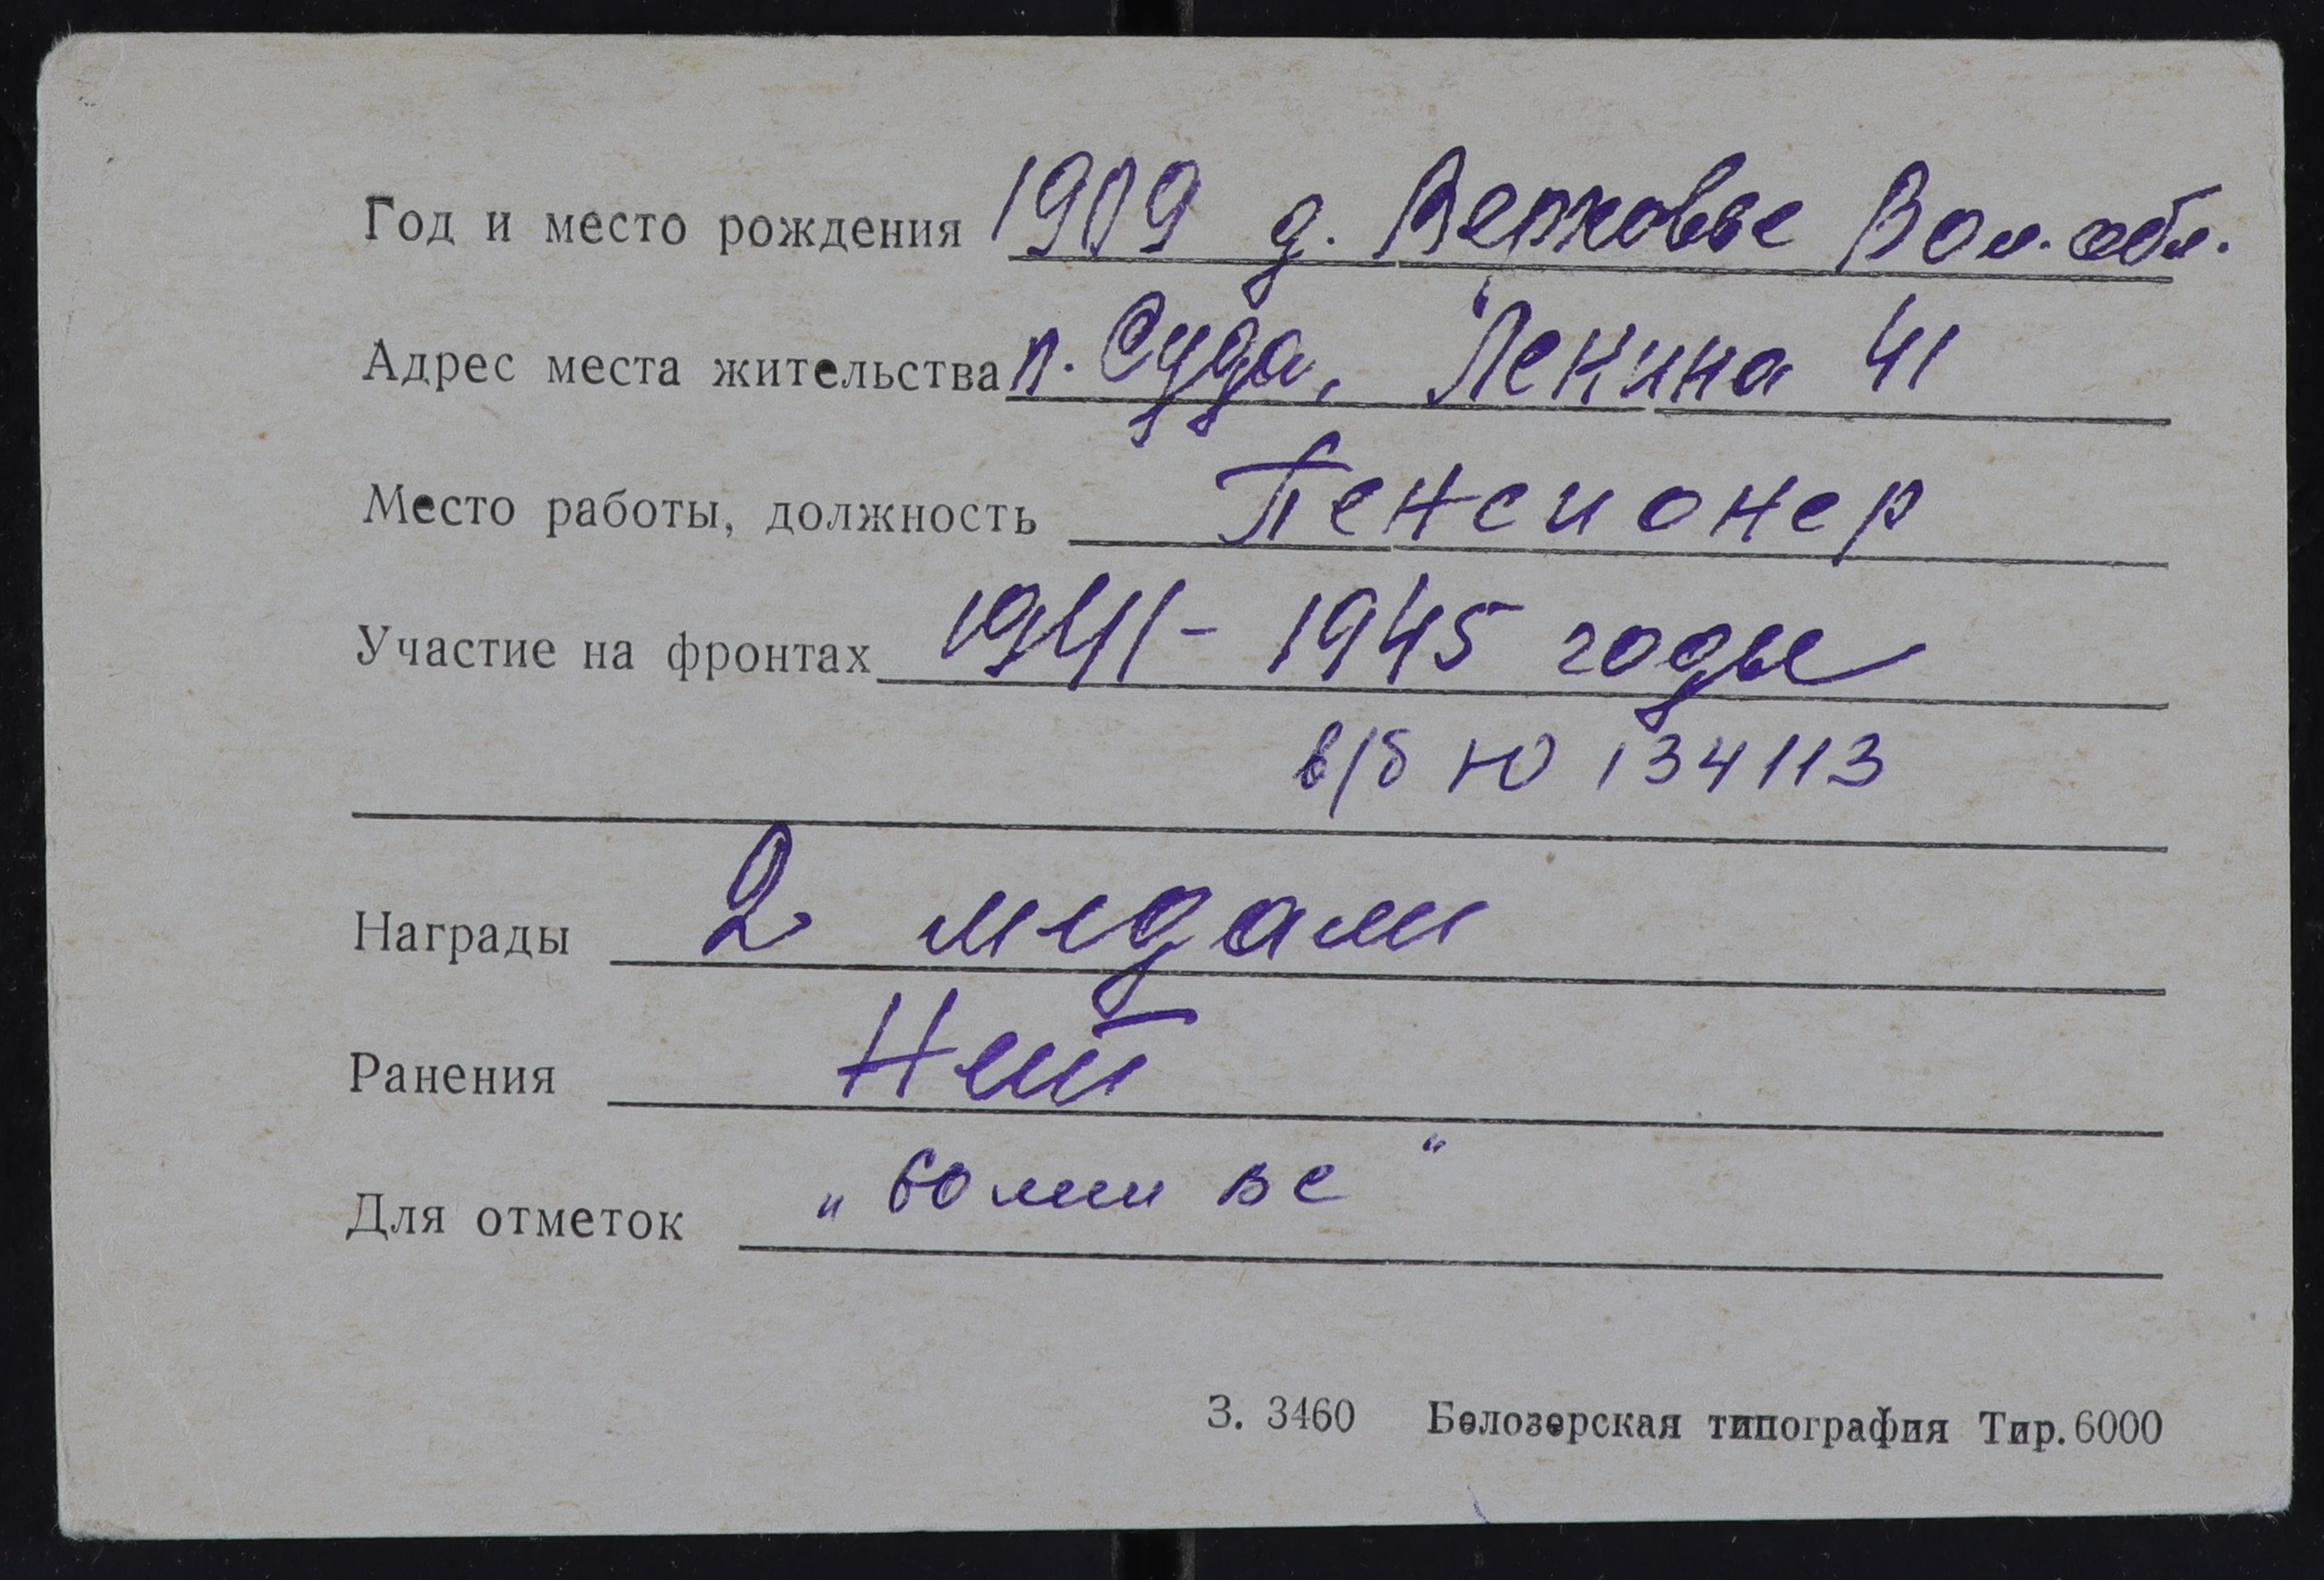 Год и место рождения 1909 д. Верховье Вол. обл.
Адрес места жительства п. Суда, Ленина 41
Место работы, должность Пенсионер
Участие на фронтах 1941 - 1945 годы
в/б Ю 134113
Награды 2 медали
Ранения Нет
Для отметок „60 лет ВС“
З. 3460 Белозерская типография Тир. 6000